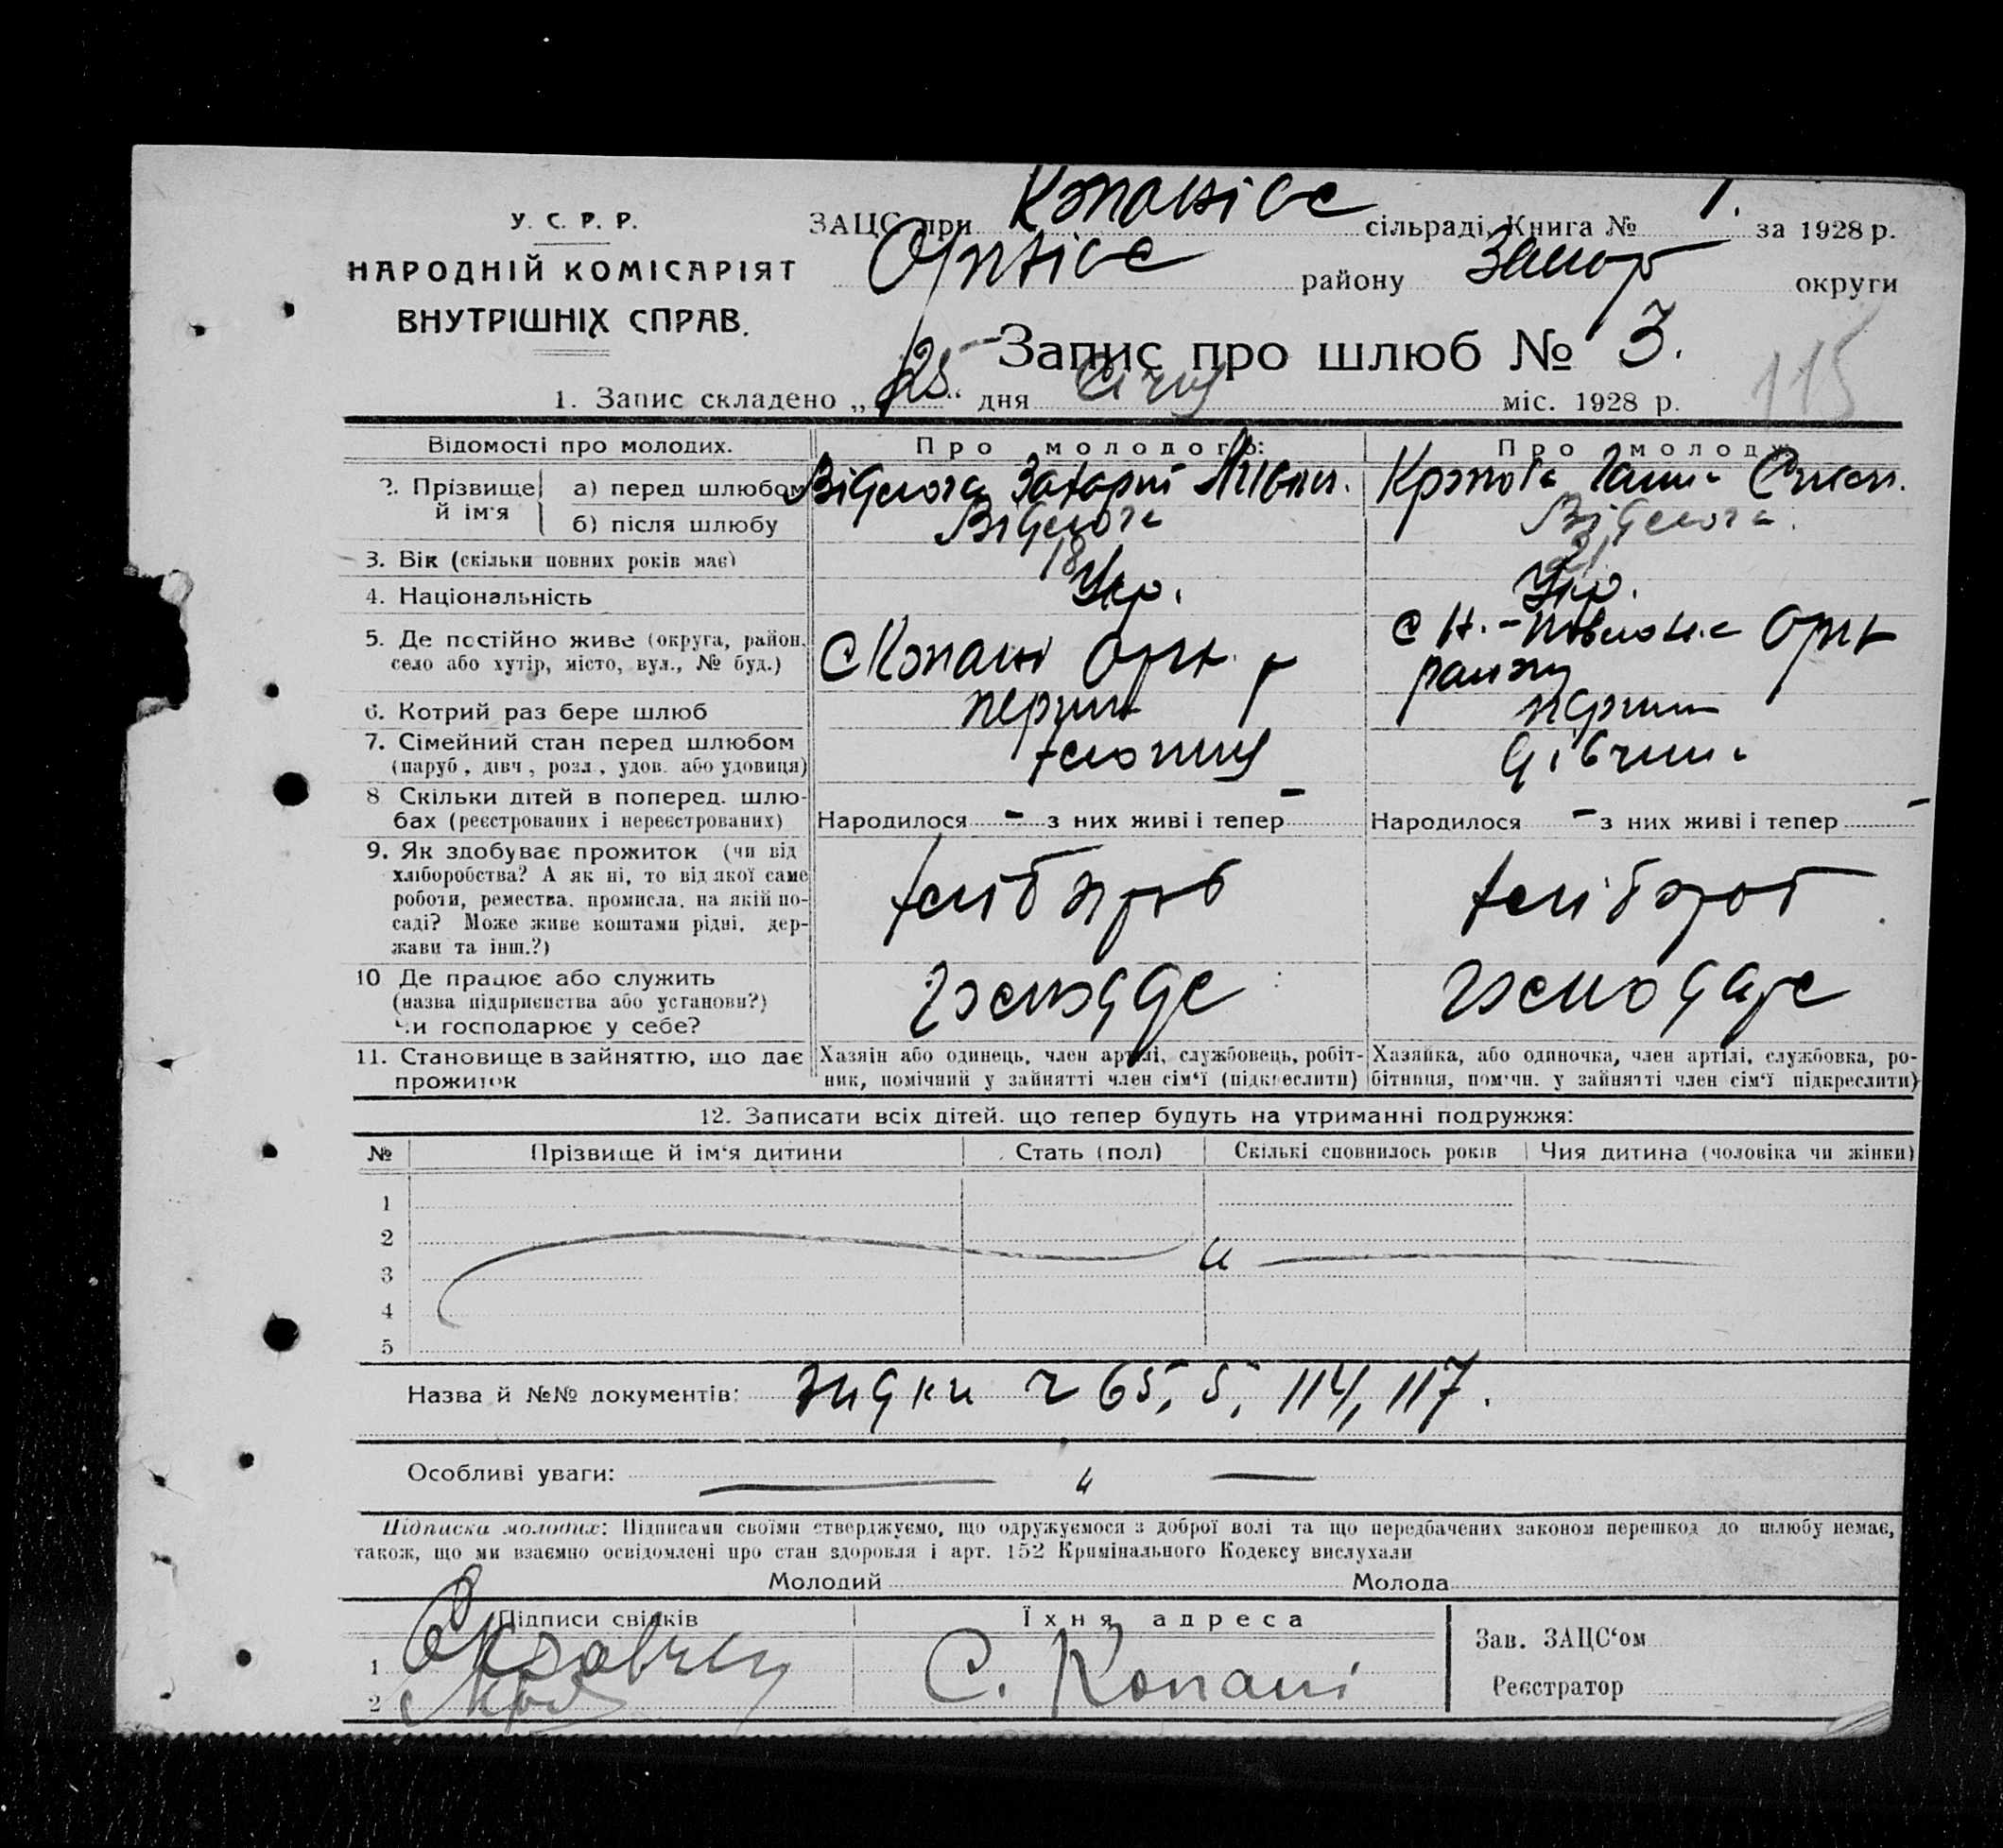 У. С. Р. Р.
НАРОДНІЙ КОМІСАРІЯТ
ВНУТРІШНІХ СПРАВ.
ЗАЦС при Копансісе сільраді, Книга № 1. за 1928 р.
району Запор округи
Запис про шлюб № 3.
115
1. Запис складено „25“ дня Січня міс. 1928 р.
Відомості про молодих. Про молодого: Про молоду
2. Прізвище й ім'я
а) перед шлюбом Захарій Ганна
б) після шлюбу
3. Вік (скільки повних років має) 18 21
4. Національність Укр. Укр.
5. Де постійно живе (округа, район, село або хутір, місто, вул., № буд.) С Копані Оріх. р с Н.-Павловка Оріх району
6. Котрий раз бере шлюб перший перший
7. Сімейний стан перед шлюбом (паруб., дівч., розл., удов. або удовиця) хлопець дівчина
8 Скільки дітей в поперед. шлюбах (реєстрованих і нереєстрованих) Народилося - з них живі і тепер - Народилося - з них живі і тепер -
9. Як здобуває прожиток (чи від хліборобства? А як ні, то від якої саме роботи, ремества, промисла, на якій посаді? Може живе коштами рідні, держави та інш.?) хлібороб хлібороб
10 Де працює або служить (назва підприєиства або установи?) Чи господарює у себе?
11. Становище в зайняттю, що дає прожиток
Хазяін або одинець, член артілі, службовець, робітник, помічний у зайнятті член сім'ї (підкреслити)
Хазяйка, або одиночка, член артілі, службовка, робітниця, помічн. у зайнятті член сім'ї підкреслити)
12. Записати всіх дітей, що тепер будуть на утриманні подружжя:
№ Прізвище й ім'я дитини Стать (пол) Скількі сповнилось років Чия дитина (чоловіка чи жінки)
1
2
3
4
5
Назва й №№ документів: 65, 5, 114, 117.
Особливі уваги:
Підписка молодих: Підписами своїми стверджуємо, що одружуємося з доброї волі та що передбачених законом перешкод до шлюбу немає,
також, що ми взаємно освідомлені про стан здоровля і арт. 152 Кримінального Кодексу вислухали
Молодий Молода
Підписи свідків Їхня адреса
1
2
С. Копані
Зав. ЗАЦС'ом
Реєстратор